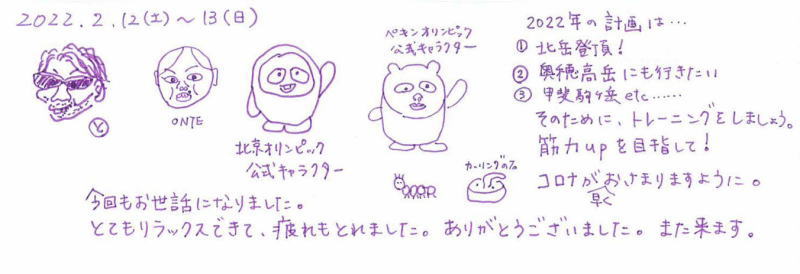 2022.2.12(土)～13(日)
ONTE
北京オリンピック
公式キャラクター
ペキンオリンピック
公式キャラクター
カーリングの
2022年の計画は…
① 北岳登頂！
② 奥穂高岳にも行きたい
③ 甲斐駒ヶ岳etc……
そのために、トレーニングをしましょう。
筋力upを目指して！
コロナが早くおさまりますように。
今回もお世話になりました。
とてもリラックスできて、疲れもとれました。ありがとうございました。また来ます。